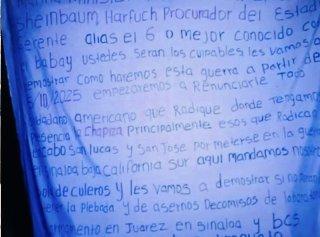 sheinbaum Harfuch Procurador del Estad
Gerente alias el 6 o mejor conocido co
babay ustedes seran los culpables les vamos a
emostrar como haremos esta guerra a Partir de
5/10/2025 empezaremos a Renunciarle Todo
dadano americano que Radique donde Tengamo
Presencia la Chapiza Principalmente esos que Radican
cabo San lucas y San Jose por meterse en la guerr
sinaloa baja California sur aqui mandamos nosotr
de culeros y les vamos a demostrar si no
la Plebada y de asernos Decomisos de
en Juarez en sinaloa y bcs